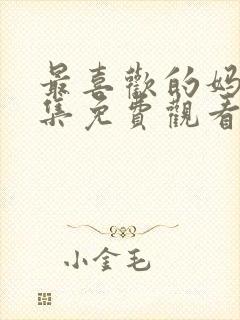 最喜歡的妈
集免費觀看
小金毛